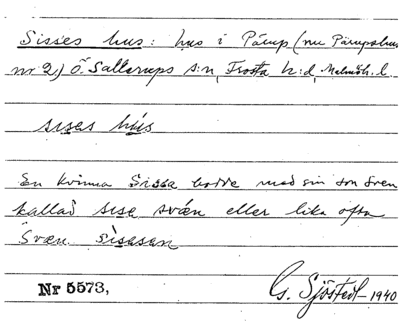 Sisses hus: hus i Pårup (nu Pårupshus
nr 2,) Ö. Sallerups s:n, Frosta h:d, Malmöh. l.
sıses hús
En kvinna Sissa bodde med sin son Sven
kallad sısa svén eller lika ofta
Svæn sìsasan
Nr 5573,
G. Sjöstedt 1940